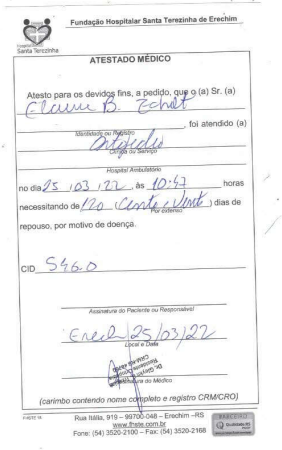 Fundação Hospitalar Santa Terezinha de Erechim
Hospitalar
Santa Terezinha
ATESTADO MÉDICO
Atesto para os devidos fins, a pedido, que o (a) Sr. (a)
B.
, foi atendido (a)
Identidade ou Registro
Ortopedia
Clínica ou Serviço
Hospital Ambulatório
no dia 25 / 03 / 22 , às 10:47 horas
necessitando de 120 ( Cento e Vinte ) dias de
Por extenso
repouso, por motivo de doença.
CID S46.0
Assinatura do Paciente ou Responsável
Erechim 25/03/22
Local e Data
Assinatura do Médico
(carimbo contendo nome completo e registro CRM/CRO)
Rua Itália, 919 – 99700-048 – Erechim –RS
www.fhste.com.br
Fone: (54) 3520-2100 – Fax: (54) 3520-2168